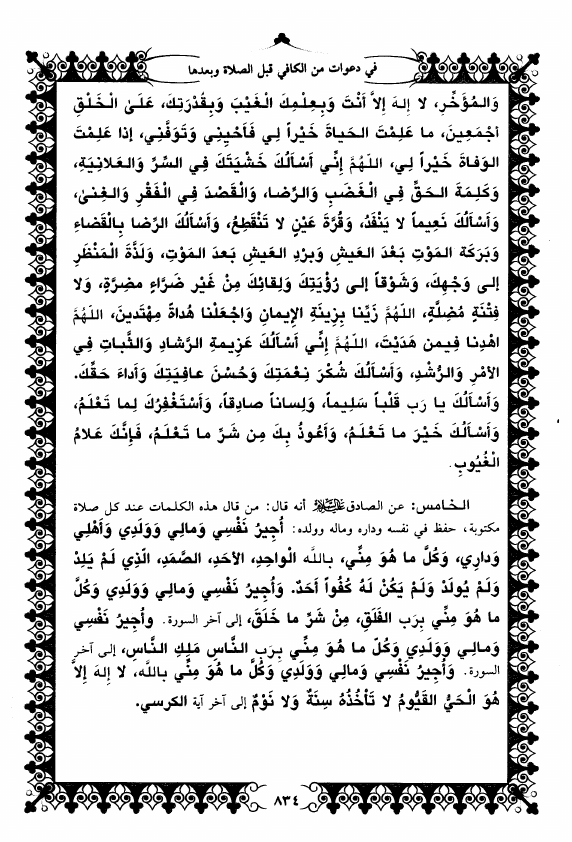 في دعوات من الكافي قبل الصلاة وبعدها
وَالمُؤَخِّرِ، لا إلهَ إلاَّ أنْتَ وَبِعِلْمِكَ الْغَيْبَ وَبِقُدْرَتِكَ، عَلَىٰ الْخَلْقِ
أجْمَعِينَ، ما عَلِمْتَ الحَياةَ خَيْراً لِي فَأحْيِنِي وَتَوَفَّنِي، إذا عَلِمْتَ
الوَفاةَ خَيْراً لِي، اللهُمَّ إنِّي أسْألُكَ خَشْيَتَكَ فِي السِّرِّ وَالعَلانِيَةِ،
وَكَلِمَةَ الحَقِّ فِي الْغَضَبِ وَالرِّضا، وَالْقَصْدَ فِي الْفَقْرِ وَالغِنىٰ،
وَأسْألُكَ نَعِيماً لا يَنْفَدُ، وَقُرَّةَ عَيْنٍ لا تَنْقَطِعُ، وَأسْألُكَ الرِّضا بِالْقَضاءِ
وَبَرَكَةَ المَوْتِ بَعْدَ العَيشِ وَبردِ العَيشِ بَعدَ المَوْتِ، وَلَذَّةَ الْمَنْظَرِ
إلى وَجْهِكَ، وَشَوْقاً إلى رُؤْيَتِكَ وَلِقائِكَ مِنْ غَيْرِ ضَرَّاءٍ مضِرَّةٍ، وَلا
فِتْنَةٍ مُضِلَّةٍ، اللهُمَّ زَيِّنا بِزِينَةِ الإيمانِ وَاجْعَلْنا هُداةً مهْتَدينَ، اللهُمَّ
اهْدِنا فِيمن هَدَيْتَ، اللهُمَّ إنِّي أسْألُكَ عَزِيمةَ الرَّشادِ وَالثَّباتَ فِي
الأمْرِ وَالرُّشْدِ، وَأسْألُكَ شُكْرَ نِعْمَتِكَ وَحُسْنَ عافِيَتِكَ وَأداءَ حَقِّكَ.
وَأسْألُكَ يا رَب قَلْباً سَلِيماً، وَلِساناً صادِقاً، وَأسْتَغْفِرُكَ لِما تَعْلَمُ،
وَأسْألُكَ خَيْرَ ما تَعْلَمُ، وَأعُوذُ بِكَ مِن شَرِّ ما تَعْلَمُ، فَإنَّكَ عَلامُ
الْغُيُوبِ.
الخامس: عن الصادق عليه السلام أنه قال: من قال هذه الكلمات عند كل صلاة
مكتوبة، حفظ في نفسه وداره وماله وولده: أُجِيرُ نَفْسِي وَمالِي وَوَلَدِي وَأهْلِي
وَدارِي، وَكُلَّ ما هُوَ مِنِّي، بـاللهِ الْواحِدِ، الأحَدِ، الصَّمَدِ، الَّذِي لَمْ يَلِدْ
وَلَمْ يُولَدْ وَلَمْ يَكُنْ لَهُ كُفُواً أحَدٌ. وَأُجِيرُ نَفْسِي وَمالِي وَوَلَدِي وَكُلَّ
ما هُوَ مِنِّي بِرَبِ الفَلَقِ، مِنْ شَرِّ ما خَلَقَ، إلى آخر السورة. وأُجِيرُ نَفْسِي
وَمالِي وَوَلَدِي وَكُلُ ما هُوَ مِنِّي بِرَبِ النَّاسِ مَلِكِ النَّاسِ، إلى آخر
السورة. وَأُجِيرُ نَفْسِي وَمالِي وَوَلَدِي وَكُلَّ ما هُوَ مِنِّي بـاللهِ، لا إلهَ إلاَّ
هُوَ الْحَيُّ القَيُّومُ لا تَأخُذُهُ سِنَةٌ وَلا نَوْمٌ إلى آخر آية الكرسي.
٨٣٤